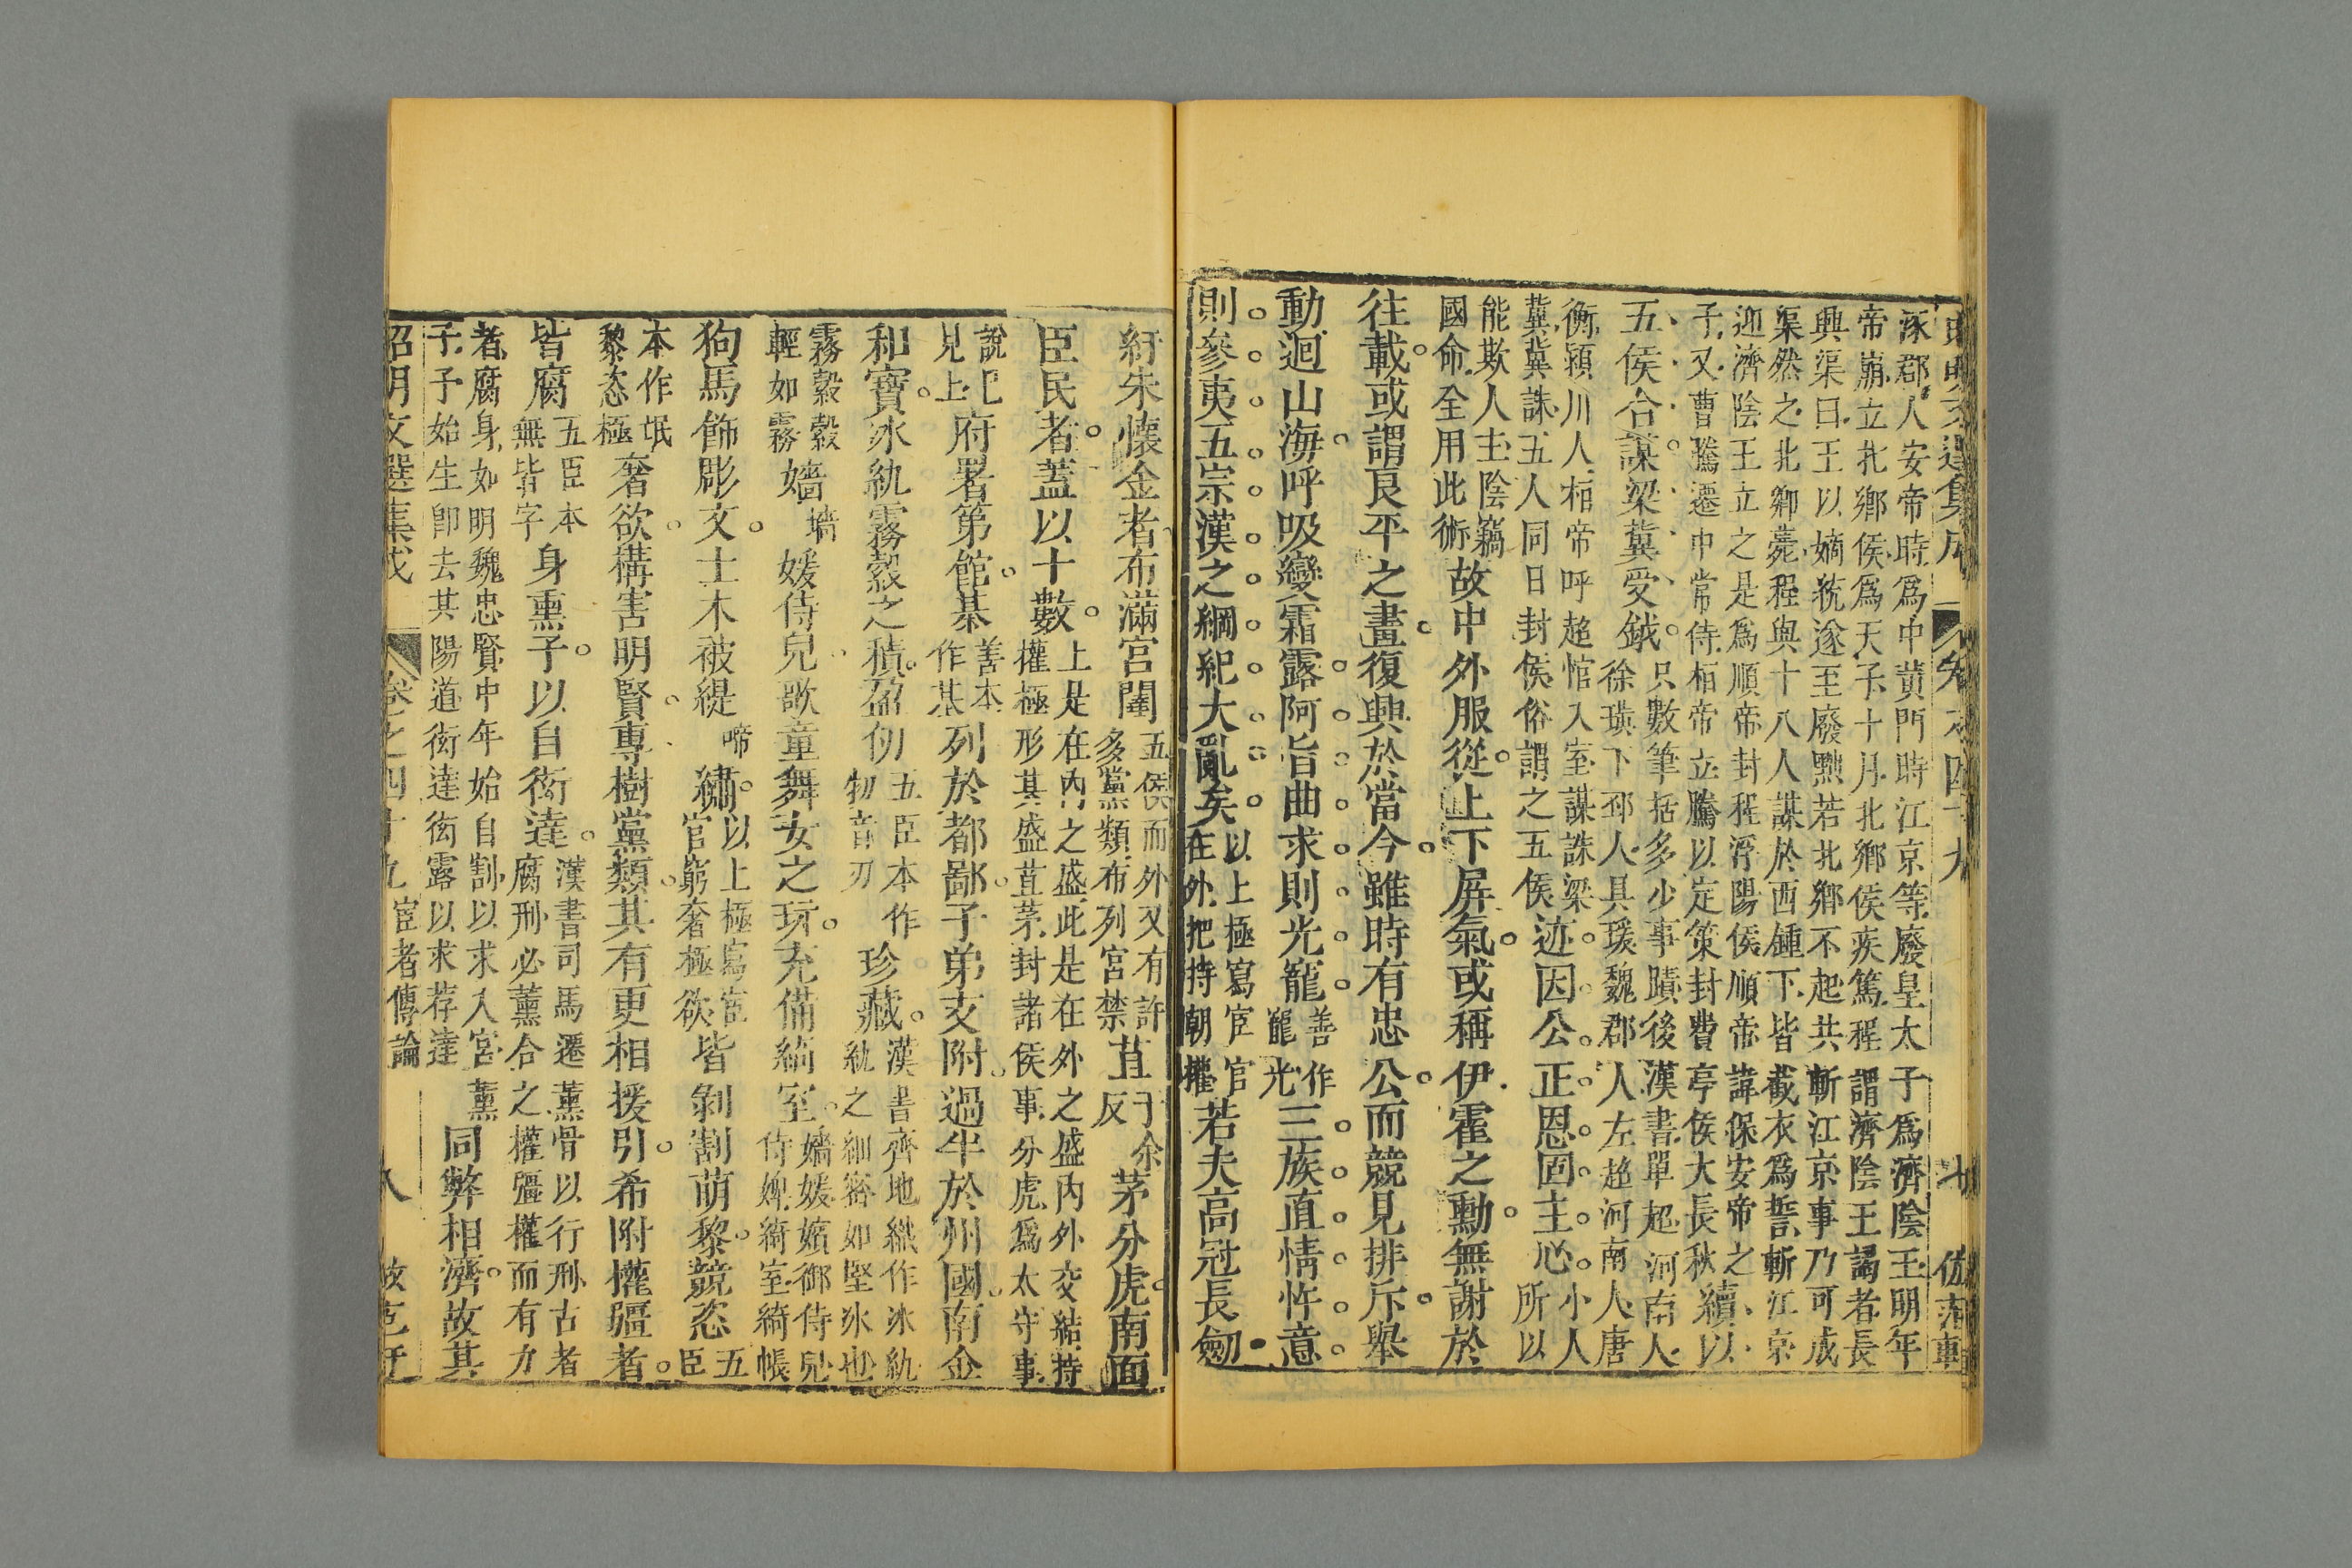 涿郡人安帝時爲中黃門時江京等廢皇太子爲濟陰王明年
帝崩立北鄉侯爲天子十月北鄉侯疾篤程謂濟陰王謁者長
興渠曰王以嫡統遂至廢黜若北鄉不起共斬江京事乃可成
渠然之北鄉薨程與十八人謀於西鍾下皆截衣爲誓斬江京
迎濟陰王立之是爲順帝封程浮陽侯順帝諱保安帝之
子又曹騰遷中常侍桓帝立騰以定策封費亭侯大長秋續以
五侯合謀梁冀受鉞
只數筆括多少事蹟後漢書單超河南人
徐璜下邳人具瑗魏郡人左悺河南人唐
衡潁川人桓帝呼超悺入室謀誅梁
冀冀誅五人同日封侯俗謂之五侯
迹因公正恩固主心
小人
所以
能欺人主陰竊
國命全用此術
故中外服從上下屏氣或稱伊霍之勳無謝於
往載或謂良平之畫復興於當今雖時有忠公而競見排斥舉
動迴山海呼吸變霜露阿旨曲求則光寵
善作
寵光
三族直情忤意
則參夷五宗漢之綱紀大亂矣
以上極寫宦官
在外把持朝權
若夫高冠長劒
紆朱懷金者布滿宮闈
五侯而外又有許
多黨類布列宮禁
苴
子余
反
茅分虎南面
臣民者蓋以十數
上是在內之盛此是在外之盛內外交結持
權極形其盛苴茅封諸侯事分虎爲太守事
說已
見上
府署第館棊
善本
作基
列於都鄙子弟支附過半於州國南金
和寶冰紈霧縠之積盈仞
五臣本作
牣音刃
珍藏
漢書齊地織作冰紈
紈之細密如堅冰也
霧縠縠
輕如霧
嬙
墻
媛侍兒歌童舞女之玩充備綺室
嬙媛嬪御侍兒
侍婢綺室綺帳
狗馬飾彫文土木被緹
啼
繡
以上極寫宦
官窮奢極欲
皆剝割萌黎競恣
五
臣
本作氓
黎恣極
奢欲構害明賢專樹黨類其有更相援引希附權彊者
皆腐
五臣本
無皆字
身熏子以自衒達
漢書司馬遷薰骨以行刑古者
腐刑必薰合之權彊權而有力
者腐身如明魏忠賢中年始自割以求入宮薰
子子始生卽去其陽道衒達衒露以求荐達
同弊相濟故其
昭明文選集成
卷之四十九
宦者傳論
八